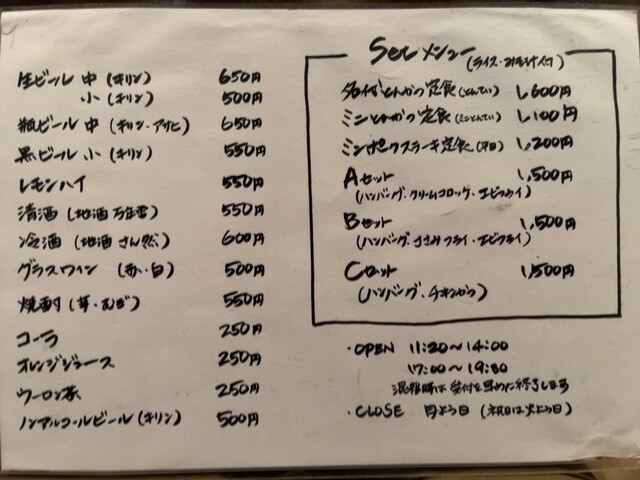 生ビール 中 (キリン) 650円
小 (キリン) 500円
瓶ビール 中 (キリン・アサヒ) 650円
黒ビール 小 (キリン) 550円
レモンハイ 550円
清酒 (地酒 万年雪) 550円
冷酒 (地酒 さん然) 600円
グラスワイン (赤・白) 500円
焼酎 (芋・むぎ) 550円
コーラ 250円
オレンジジュース 250円
ウーロン茶 250円
ノンアルコールビール (キリン) 500円
Setメニュー (ライス・みそ汁付)
とんかつ定食 (とんてい) 1,600円
ミニとんかつ定食 (ミニとんてい) 1,100円
ミニポークステーキ定食 (平日) 1,200円
Aセット 1,500円
(ハンバーグ、クリームコロッケ・エビフライ)
Bセット 1,500円
(ハンバーグ、ささみフライ・エビフライ)
Cセット 1,500円
(ハンバーグ、チキンかつ)
・OPEN 11:20〜14:00
17:00〜19:30
混雑時は受付を早めに終了します
・CLOSE 月よう日 (祝日は火よう日)